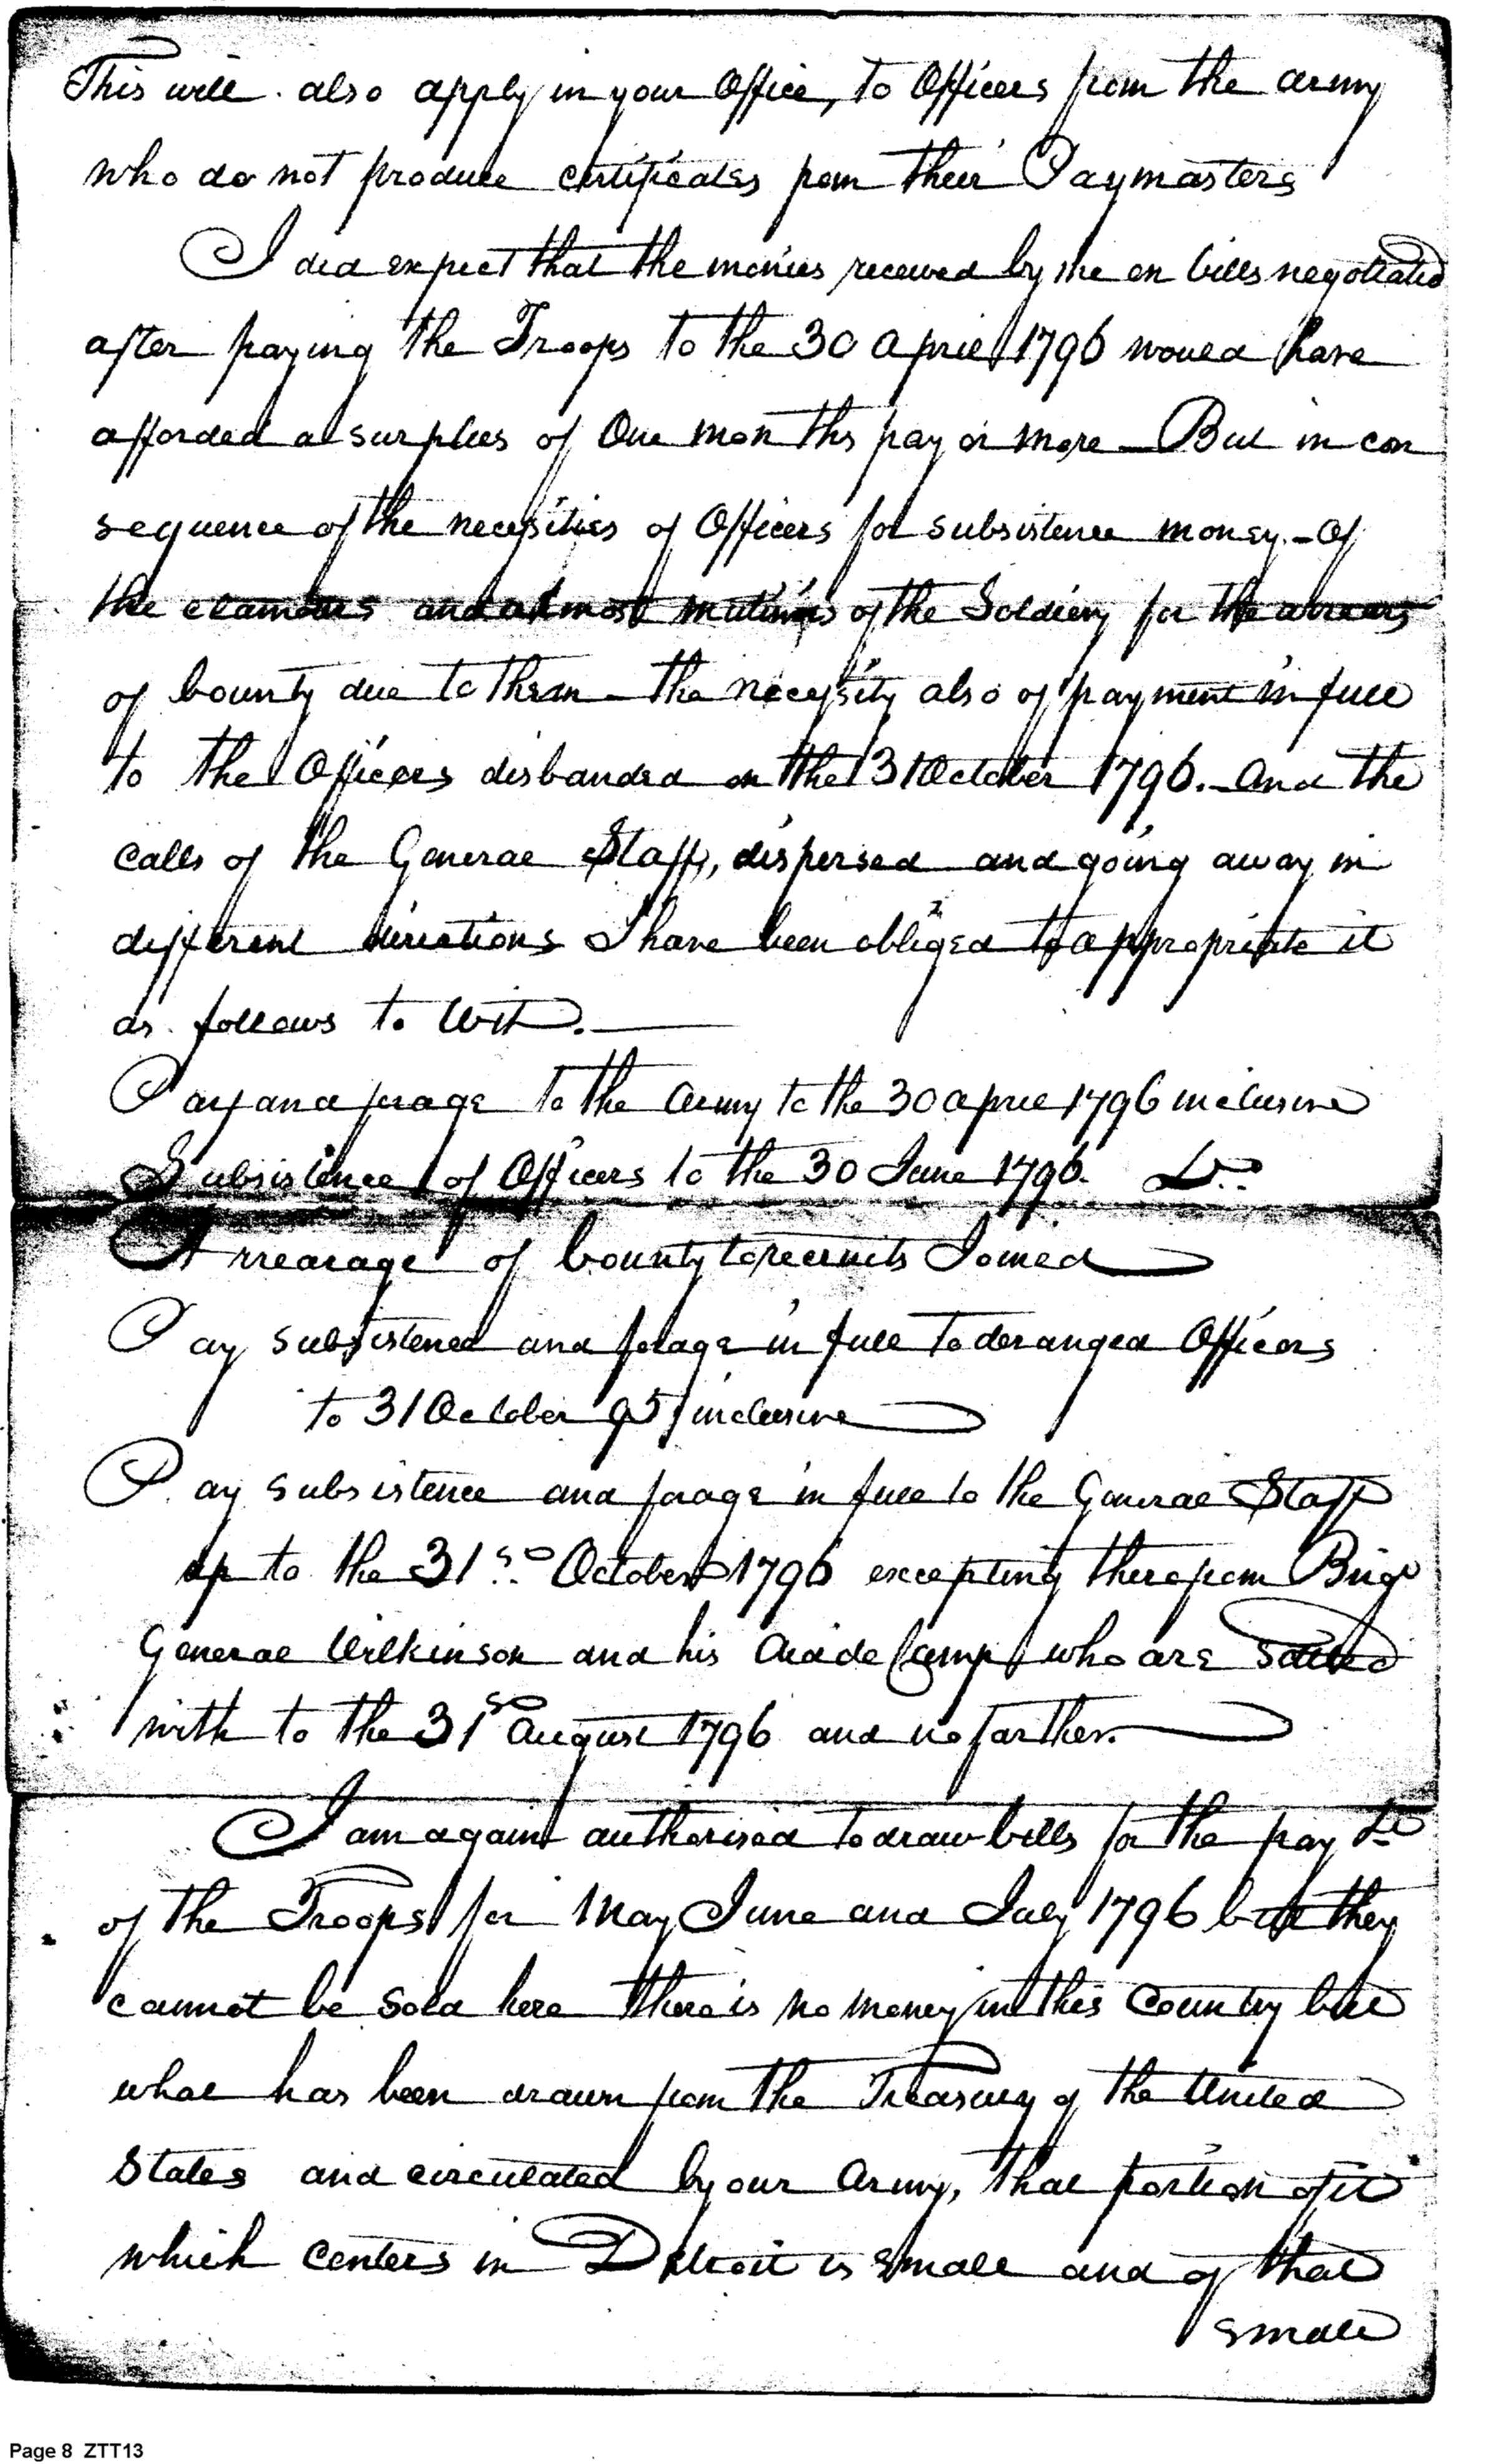 This will also apply in your Office, to Officers from the army
who do not produce certificates from their Paymasters
I did expect that the monies received by me on bills negotiated
after paying the Troops to the 30 April 1796 would have
afforded a surplus of One months pay or more - But in con
sequence of the necessities of Officers for subsistence money. - Of
the clamours and almost mutinies of the Soldiery for the arrears
of bounty due to them - the necessity also of payment in full
to the Officers disbanded on the 31 October 1796. - And the
calls of the General Staff, dispersed and going away in
different directions I have been obliged to appropriate it
as follows to Wit. -
Pay and forage to the Army to the 30 April 1796 inclusive
Subsistence of Officers to the 30 June 1796. Do.
Arrearage of bounty to recruits Joined
Pay subsistence and forage in full to deranged Officers
to 31 October 95 inclusive
Pay subsistence and forage in full to the General Staff
up to the 31st October 1796 excepting therefrom Brigr
General Wilkinson and his Aid de Camp who are settled
with to the 31st August 1796 and no farther.
I am again authorised to draw bills for the pay &c
of the Troops for May June and July 1796 but they
cannot be Sold here there is no money in this Country but
what has been drawn from the Treasury of the United
States and circulated by our Army, that portion of it
which centers in Detroit is small and of that
small
Page 8 ZTT13